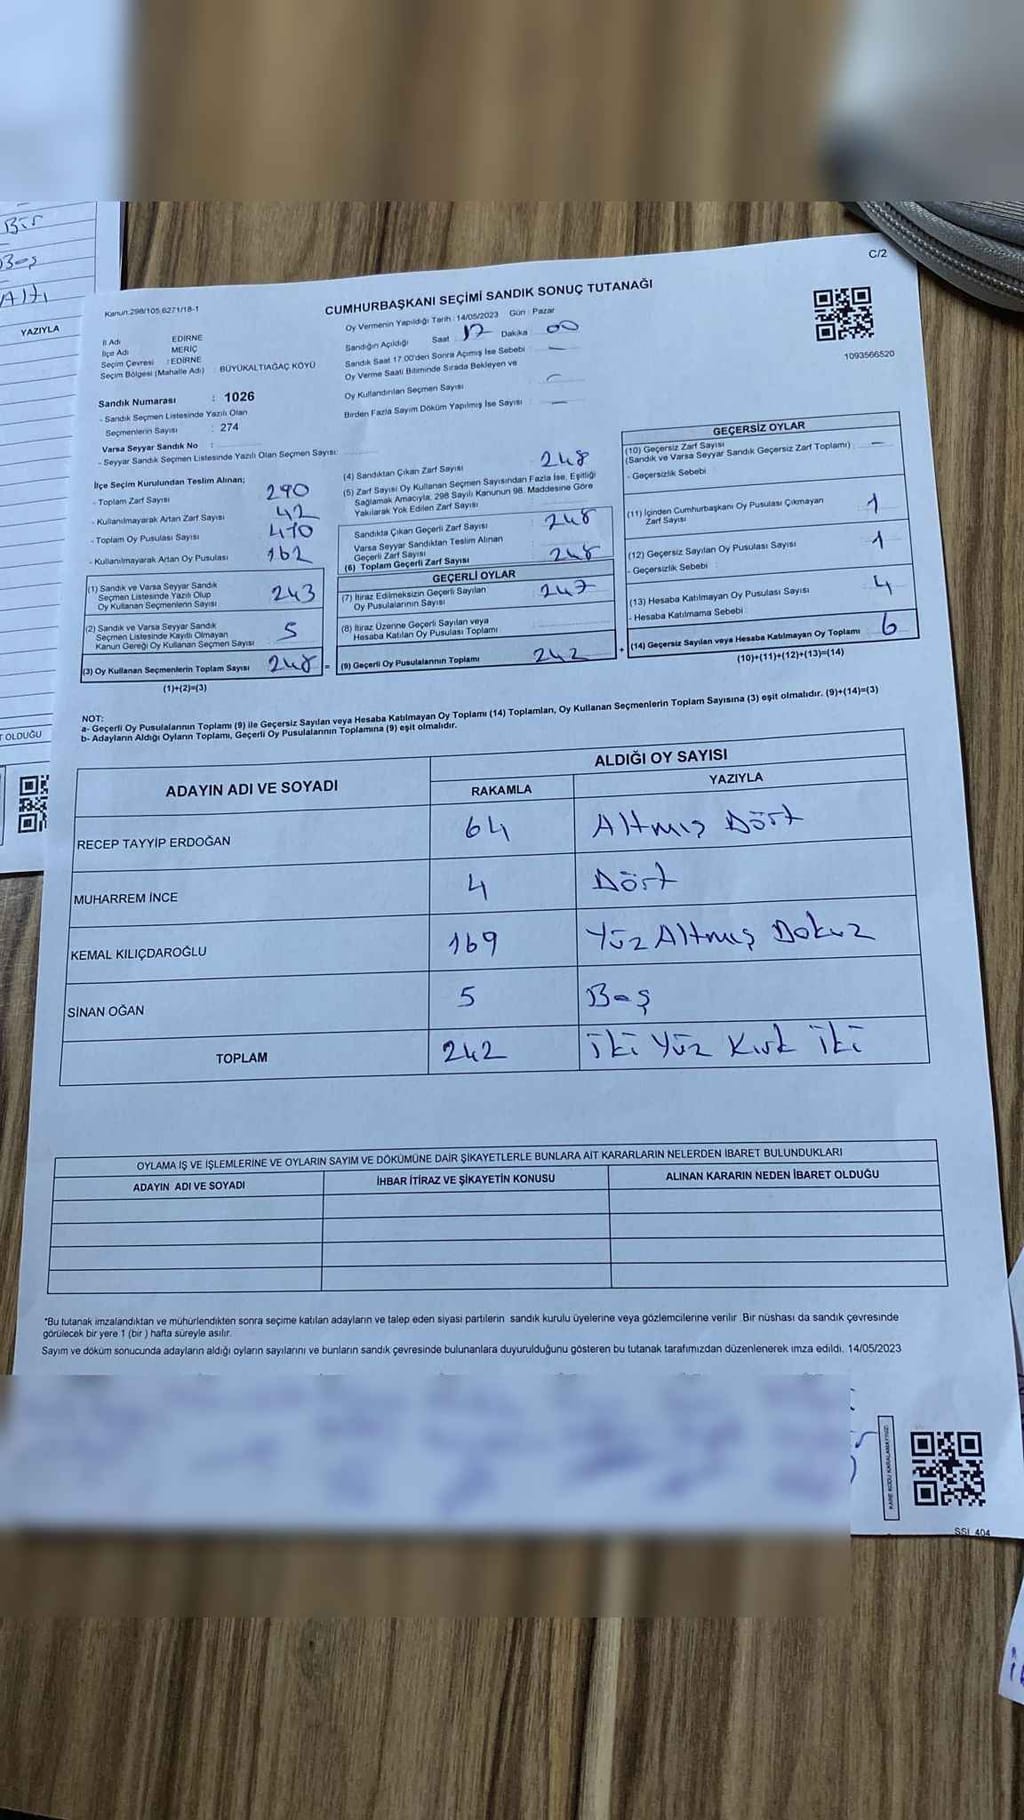 Bir
Beş
Altı
YAZIYLA
T OLDUĞU
C/2
Kanun:298/105,6271/18-1
CUMHURBAŞKANI SEÇİMİ SANDIK SONUÇ TUTANAĞI
Oy Vermenin Yapıldığı Tarih : 14/05/2023 Gün : Pazar
İl Adı EDİRNE
İlçe Adı MERİÇ
Seçim Çevresi : EDİRNE
Seçim Bölgesi (Mahalle Adı) : BÜYÜKALTIAĞAÇ KÖYÜ
Sandığın Açıldığı Saat 17 Dakika 00
Sandık Saat 17:00'den Sonra Açımış İse Sebebi
Oy Verme Saati Bitiminde Sırada Bekleyen ve
Oy Kullandırılan Seçmen Sayısı
Birden Fazla Sayım Döküm Yapılmış İse Sayısı
1093566520
Sandık Numarası : 1026
- Sandık Seçmen Listesinde Yazılı Olan
Seçmenlerin Sayısı : 274
Varsa Seyyar Sandık No :
- Seyyar Sandık Seçmen Listesinde Yazılı Olan Seçmen Sayısı:
İlçe Seçim Kurulundan Teslim Alınan;
- Toplam Zarf Sayısı 290
- Kullanılmayarak Artan Zarf Sayısı 42
- Toplam Oy Pusulası Sayısı 410
- Kullanılmayarak Artan Oy Pusulası 162
(1) Sandık ve Varsa Seyyar Sandık
Seçmen Listesinde Yazılı Olup
Oy Kullanan Seçmenlerin Sayısı 243
(2) Sandık ve Varsa Seyyar Sandık
Seçmen Listesinde Kayıtlı Olmayan
Kanun Gereği Oy Kullanan Seçmen Sayısı 5
(3) Oy Kullanan Seçmenlerin Toplam Sayısı 248 =
(1)+(2)=(3)
(4) Sandıktan Çıkan Zarf Sayısı 248
(5) Zarf Sayısı Oy Kullanan Seçmen Sayısından Fazla İse, Eşitliği
Sağlamak Amacıyla, 298 Sayılı Kanunun 98. Maddesine Göre
Yakılarak Yok Edilen Zarf Sayısı
Sandıkta Çıkan Geçerli Zarf Sayısı 248
Varsa Seyyar Sandıktan Teslim Alınan
Geçerli Zarf Sayısı
(6) Toplam Geçerli Zarf Sayısı 248
GEÇERLİ OYLAR
(7) İtiraz Edilmeksizin Geçerli Sayılan
Oy Pusulalarının Sayısı 247
(8) İtiraz Üzerine Geçerli Sayılan veya
Hesaba Katılan Oy Pusulası Toplamı
(9) Geçerli Oy Pusulalarının Toplamı 242 +
GEÇERSİZ OYLAR
(10) Geçersiz Zarf Sayısı
(Sandık ve Varsa Seyyar Sandık Geçersiz Zarf Toplamı)
- Geçersizlik Sebebi
(11) İçinden Cumhurbaşkanı Oy Pusulası Çıkmayan
Zarf Sayısı 1
(12) Geçersiz Sayılan Oy Pusulası Sayısı 1
- Geçersizlik Sebebi
(13) Hesaba Katılmayan Oy Pusulası Sayısı 4
- Hesaba Katılmama Sebebi
(14) Geçersiz Sayılan veya Hesaba Katılmayan Oy Toplamı 6
(10)+(11)+(12)+(13)=(14)
NOT:
a- Geçerli Oy Pusulalarının Toplamı (9) ile Geçersiz Sayılan veya Hesaba Katılmayan Oy Toplamı (14) Toplamları, Oy Kullanan Seçmenlerin Toplam Sayısına (3) eşit olmalıdır. (9)+(14)=(3)
b- Adayların Aldığı Oyların Toplamı, Geçerli Oy Pusulalarının Toplamına (9) eşit olmalıdır.
ADAYIN ADI VE SOYADI ALDIĞI OY SAYISI
RAKAMLA YAZIYLA
RECEP TAYYİP ERDOĞAN 64 Altmış Dört
MUHARREM İNCE 4 Dört
KEMAL KILIÇDAROĞLU 169 Yüz Altmış Dokuz
SİNAN OĞAN 5 Beş
TOPLAM 242 İki Yüz Kırk İki
OYLAMA İŞ VE İŞLEMLERİNE VE OYLARIN SAYIM VE DÖKÜMÜNE DAİR ŞİKAYETLERLE BUNLARA AİT KARARLARIN NELERDEN İBARET BULUNDUKLARI
ADAYIN ADI VE SOYADI İHBAR İTİRAZ VE ŞİKAYETİN KONUSU ALINAN KARARIN NEDEN İBARET OLDUĞU
*Bu tutanak imzalandıktan ve mühürlendikten sonra seçime katılan adayların ve talep eden siyasi partilerin sandık kurulu üyelerine veya gözlemcilerine verilir. Bir nüshası da sandık çevresinde
görülecek bir yere 1 (bir ) hafta süreyle asılır.
Sayım ve döküm sonucunda adayların aldığı oyların sayılarını ve bunların sandık çevresinde bulunanlara duyurulduğunu gösteren bu tutanak tarafımızdan düzenlenerek imza edildi. 14/05/2023
KARE KODU KARALAMAYINIZ!
SSI_404